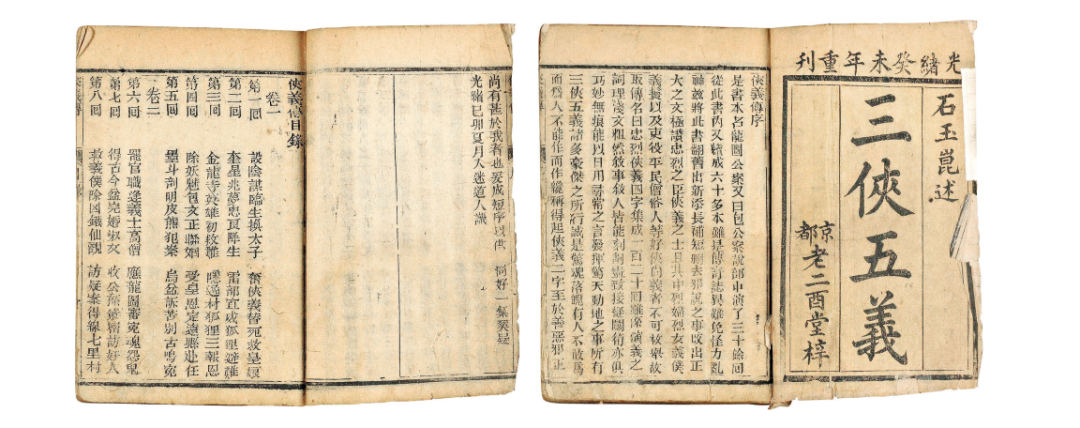 光緒癸未年重刊
石玉崑述
三俠五義
京都老二酉堂梓
俠義傳序
是書本名龍圖公案又曰包公案說部中演了三十餘回
從此書內又續成六十多本雖是傳奇誌異難免怪力亂
神茲將此書翻舊出新添長補短刪去邪說之事改出正
大之文極讚忠烈之臣俠義之士且其中烈婦烈女義僕
義鬟以及吏役平民僧俗人等好俠尚義者不可枚舉故
取傳名曰忠烈俠義四字集成一百二十回雖係演義之
詞理淺文粗然敘事敘人皆能刻劃盡致接縫鬬筍亦俱
巧妙無痕能以日用尋常之言發揮驚天動地之事所有
三俠五義諸多豪傑之所行誠是驚魂落魄有人不敢為
而為人不能作而作纔稱得起俠義二字至於善惡邪正
尚有甚於我者也爰成短序以供 同好一
光緒己卯夏月入迷道人識
俠義傳目錄
卷一
第一回 設陰謀臨生換太子 奮俠義替死救皇娘
第二回 奎星兆夢忠良降生 雷部宣威狐狸避難
第三回 金龍寺英雄初救難 隱逸村狐狸三報恩
第四回 除妖魅包文正聯姻 受皇恩定遠縣赴任
第五回 墨斗剖明皮熊犯案 烏盆訴苦別古鳴冤
卷二
第六回 罷官職逢義士高僧 應龍圖審冤魂怨鬼
第七回 得古今盆完婚淑女 收公孫策密訪奸人
第八回 救義僕除凶鐵仙觀 訪疑案得線七里村